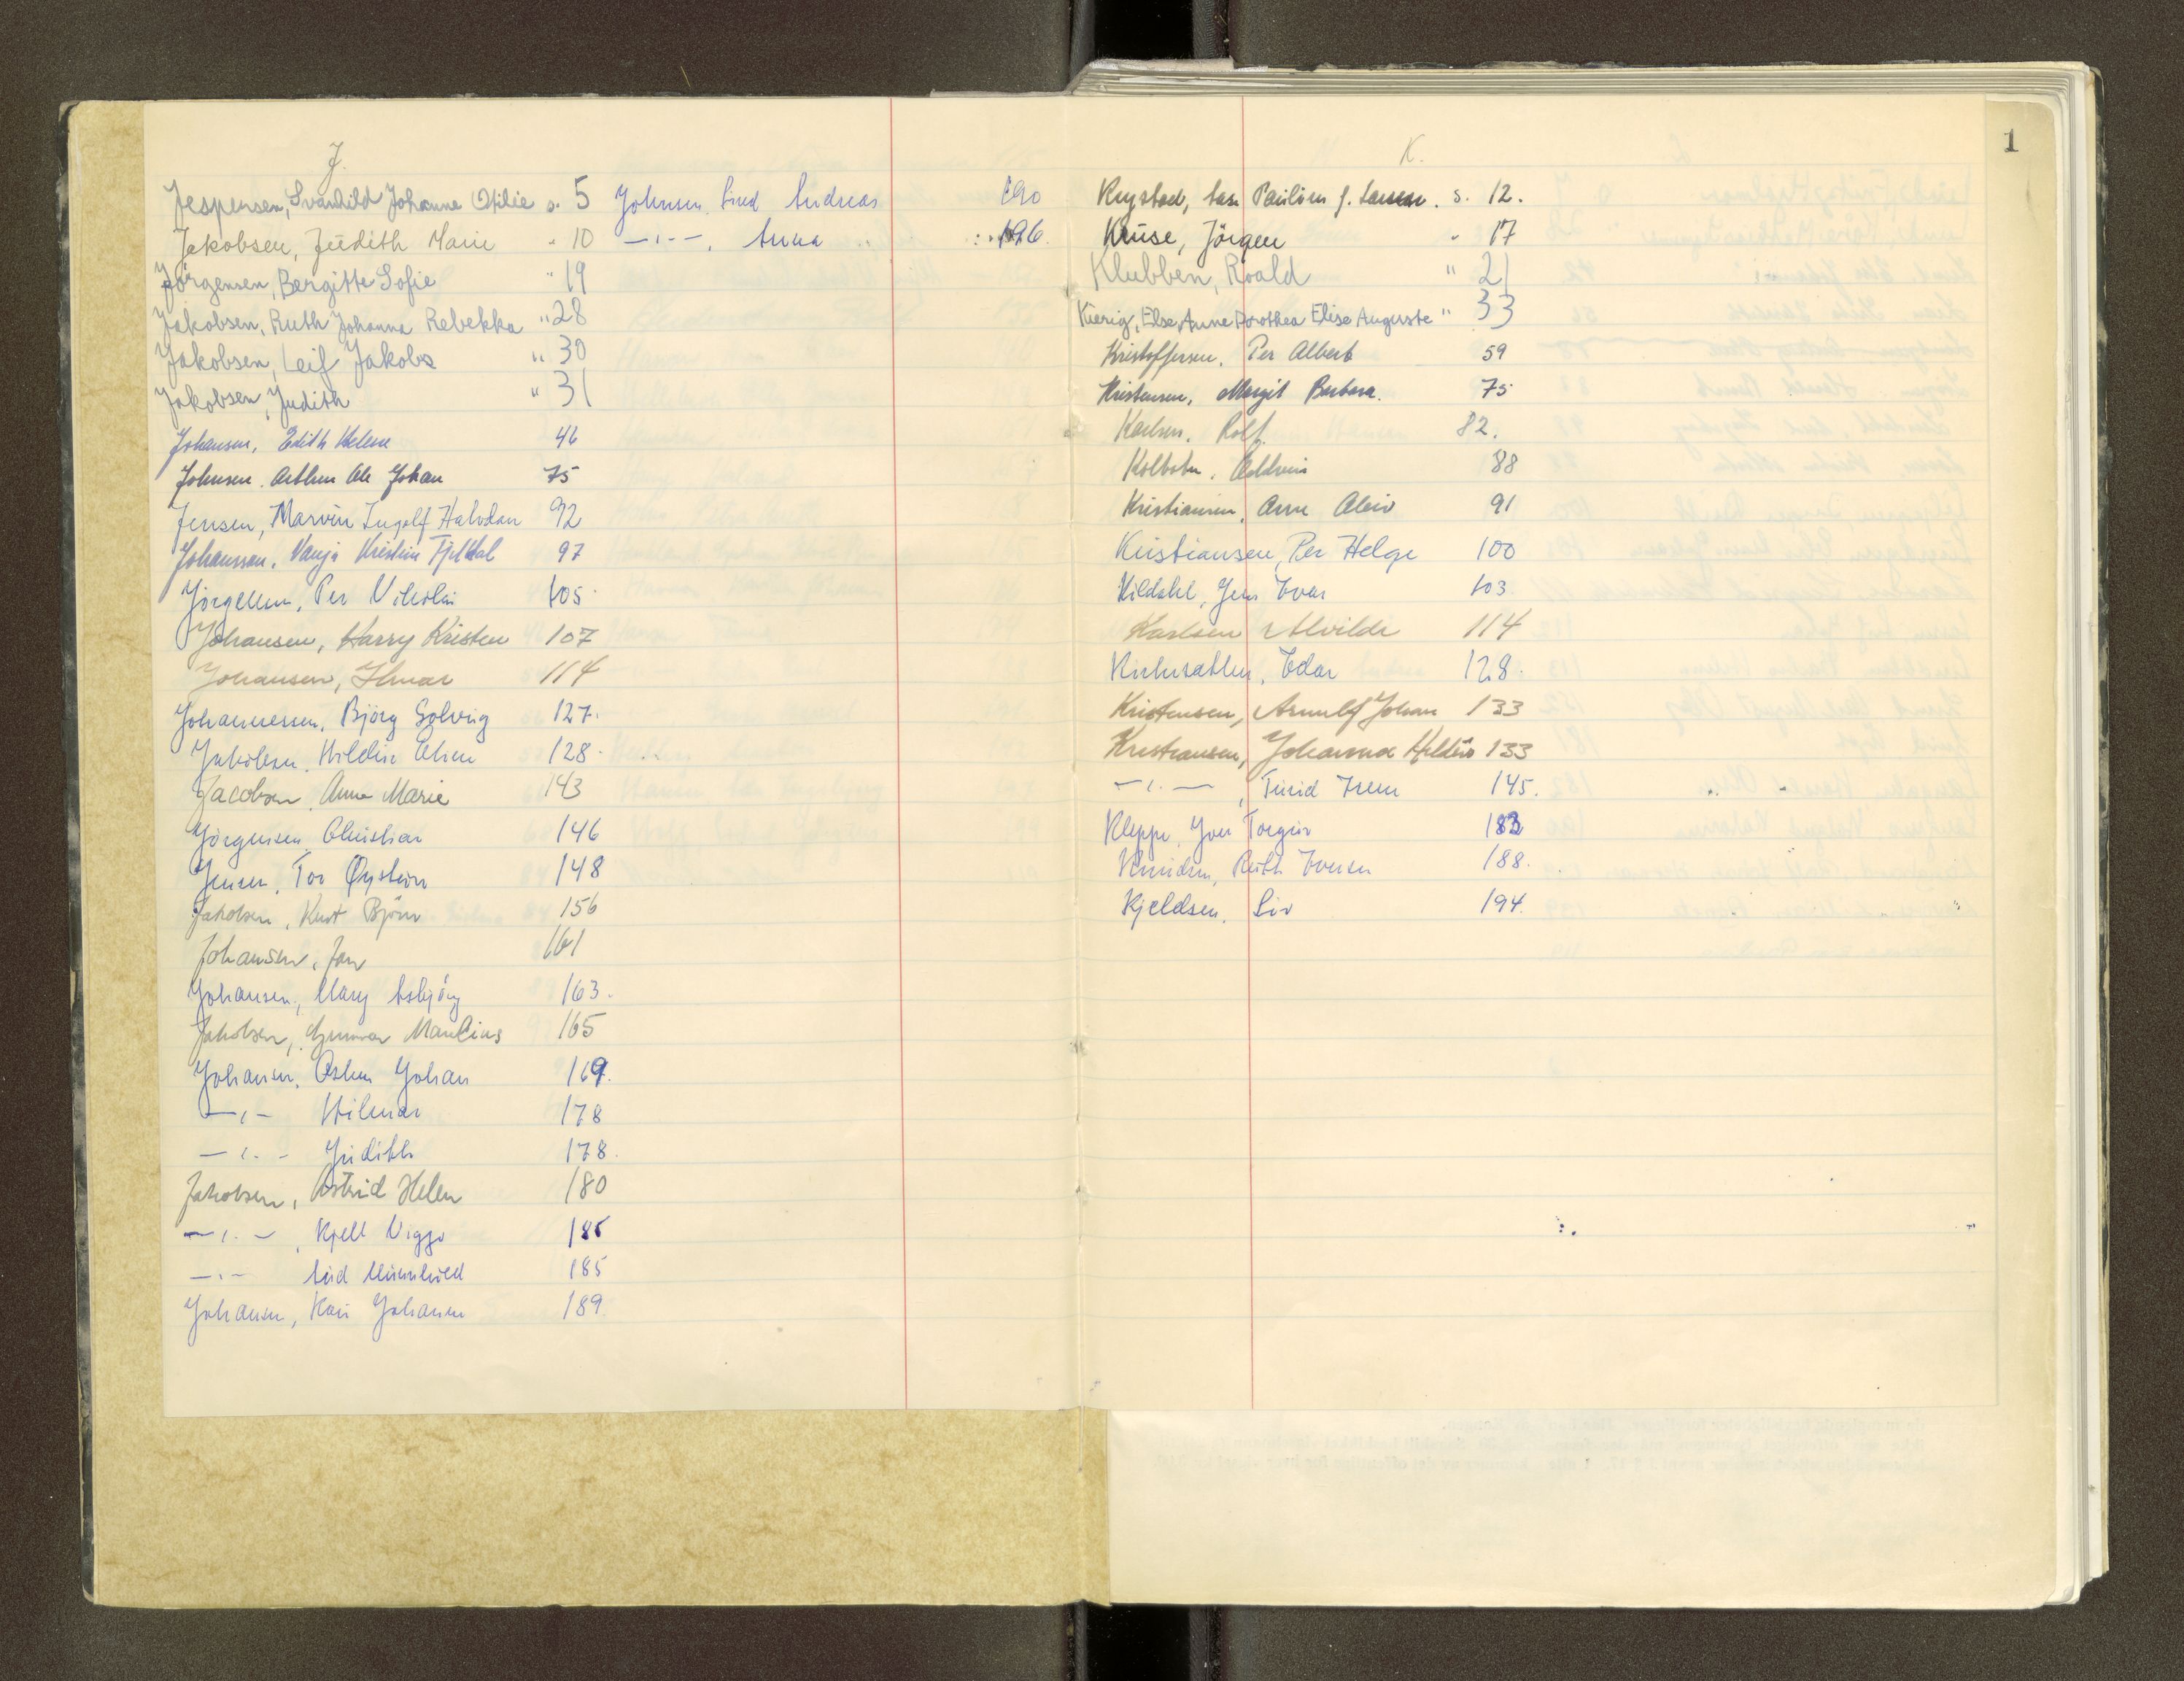 J.
Jespersen, Svanhild Johanne Otilie s. 5
Jakobsen, Judith Marie " 10
Jörgensen, Bergitte Sofie " 19
Jakobsen, Ruth Johanna Rebekka " 28
Jakobsen, Leif Jakobs " 30
Jakobsen, Judith " 31
Johansen, Edith Helene 46
Johnsen. Arthur Ole Johan 75
Jensen, Marvin Ingolf Halvdan 92
Johansson, Vanja Kristin 97
Jörgensen, Per Nikolai 105
Johansen, Harry Kristen 107
Johansen, Ilmar 114
Johannessen, Björg Solveig 127.
Jakobsen. 128.
Jacobsen. Anne Marie 143
Jörgensen, Christian 146
Jensen, Tor Øystein 148
Jakobsen, Kurt Björn 156
Johansen, Jan 161
Johansen, Mary Asbjörg 163.
Jakobsen, Gunnar 165
Johansen, Johan 169.
—,— Hilmar 178
—,— Judith 178.
Jakobsen, Astrid Helen 180
—,—, Kjell Viggo 185
—,— 185
Johansen, Kari Johanne 189.
Johnsen. Andreas 190
—,—, Anna 196.
K.
Krystad, Pauline f. Larsen. s. 12.
Kruse, Jörgen " 17
Klubben, Roald " 21
Kierig, Else Anne Dorothea Elise Auguste " 33
Kristoffersen. Per Albert 59
Kristensen, Margit Barbara. 75
Karlsen. Rolf. 82.
Kolbotn. 88
Kristiansen, Arne Aleiv 91
Kristiansen, Per Helge 100
Kildahl, Jens Ivar 103
Karlsen Alvilde 114
Edar 128.
Kristensen, Arnulf Johan 133
Kristiansen, Johanna 133
—,—, Turid Irene 145.
Kleppe, Torgeir 183
Knudsen, Ruth Iversen 188.
Kjeldsen, Liv 194.
1